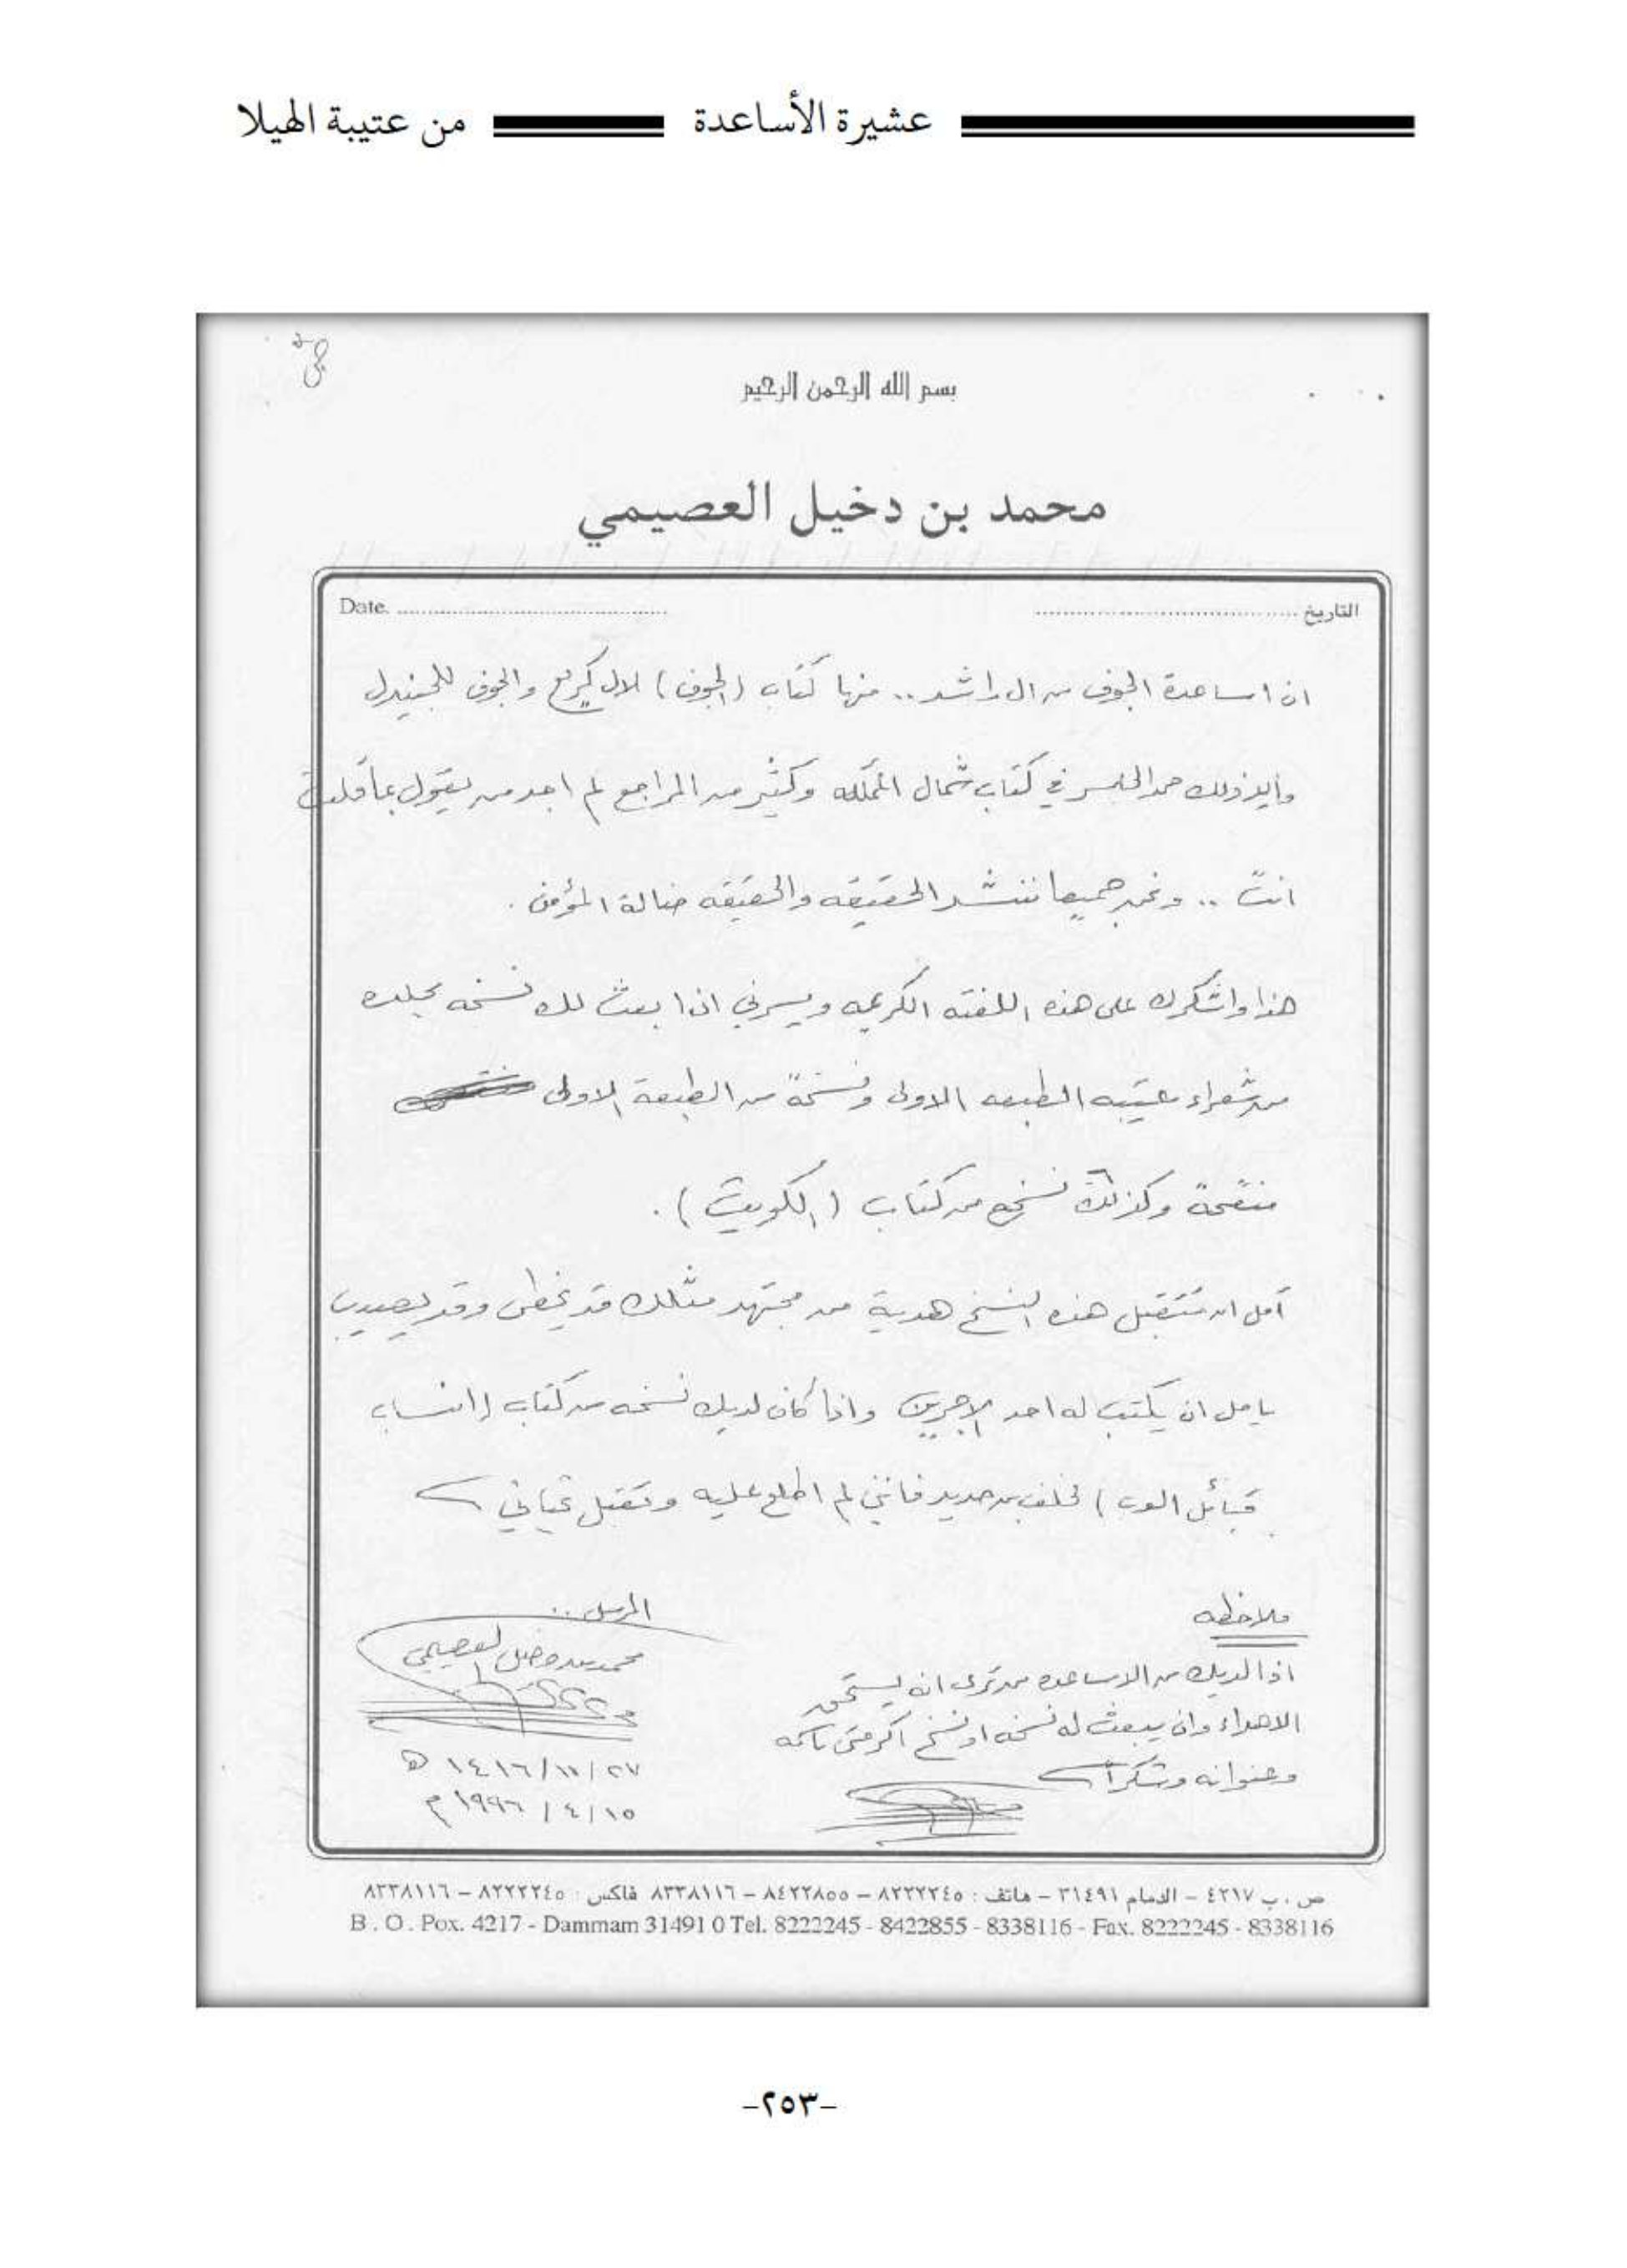 عشيرة الأساعدة من عتيبة الهيلا
بسم الله الرحمن الرحيم
محمد بن دخيل العصيمي
التاريخ ........ Date. ........
ان اساعدة الجوف من ال راشد .. منها كتاب (الجوف) لال كريع والجوف للجنيدل
وايد ذلك حمد الجاسر في كتاب شمال المملكه وكثير من المراجع لم اجد من يقول بما قلت
انت .. ونحن جميعا ننشد الحقيقه والحقيقه ضالة المؤمن .
هذا واشكرك على هذه اللفته الكريمه ويسرني ان ابعث لك نسخه مجلده
من شعراء عتيبه الطبعه الاولى ونسخة من الطبعة الاولى
منقحة وكذلك نسخ من كتاب (الكويت) .
آمل ان تتقبل هذه النسخ هدية من مجتهد مثلك قد يخطى وقد يصيب
يامل ان يكتب له احد الاجرين واذا كان لديك نسخه من كتاب (انساب
قبائل العرب) لخلف بن حديد فانني لم اطلع عليه وتقبل تحياتي
ملاحظه
اذا لديك من الاساعده من ترى انه يستحق
الاهداء وان يبعث له نسخه او نسخ اكرمتني باسمه
وعنوانه وشكراً
المرسل ..
محمد بن دخيل العصيمي
٢٧ / ١١ / ١٤١٦ ه
١٥ / ٤ / ١٩٩٦ م
ص . ب ٤٢١٧ – الدمام ٣١٤٩١ – هاتف : ٨٢٢٢٢٤٥ – ٨٤٢٢٨٥٥ – ٨٣٣٨١١٦ فاكس : ٨٢٢٢٢٤٥ – ٨٣٣٨١١٦
B . O . Pox. 4217 - Dammam 31491 0 Tel. 8222245 - 8422855 - 8338116 - Fax. 8222245 - 8338116
-٢٥٣-